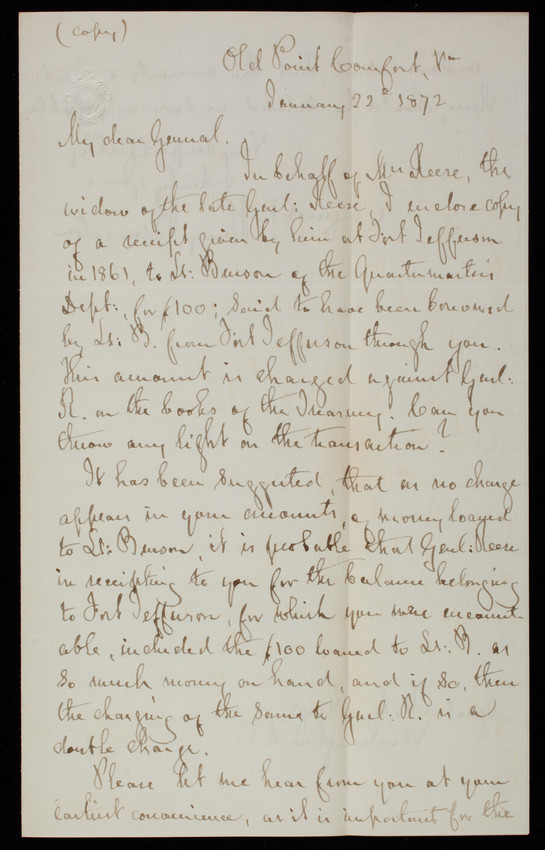 (copy)
Old Point Comfort, Va
January 22d 1872
My dear General.
In behalf of Mrs Reese, the
widow of the late Genl: Reese, I enclose copy
of a receipt given by him at Fort Jefferson
in 1861, to Lt: Benson of the Quartermaster's
Dept:, for $100; said to have been borrowed
by Lt: B. from Fort Jefferson through you.
This amount is charged against Genl:
R. on the books of the Treasury. Can you
throw any light on the transaction?
It has been suggested, that as no charge
appears in your accounts, of money loaned
to Lt: Benson, it is probable that Genl: Reese
in receipting to you for the balance belonging
to Fort Jefferson, for which you were account-
able, included the $100 loaned to Lt: B. as
so much money on hand, and if so, then
the charging of the same to Genl: R. is a
double charge.
Please let me hear from you at your
earliest convenience, as it is important for the